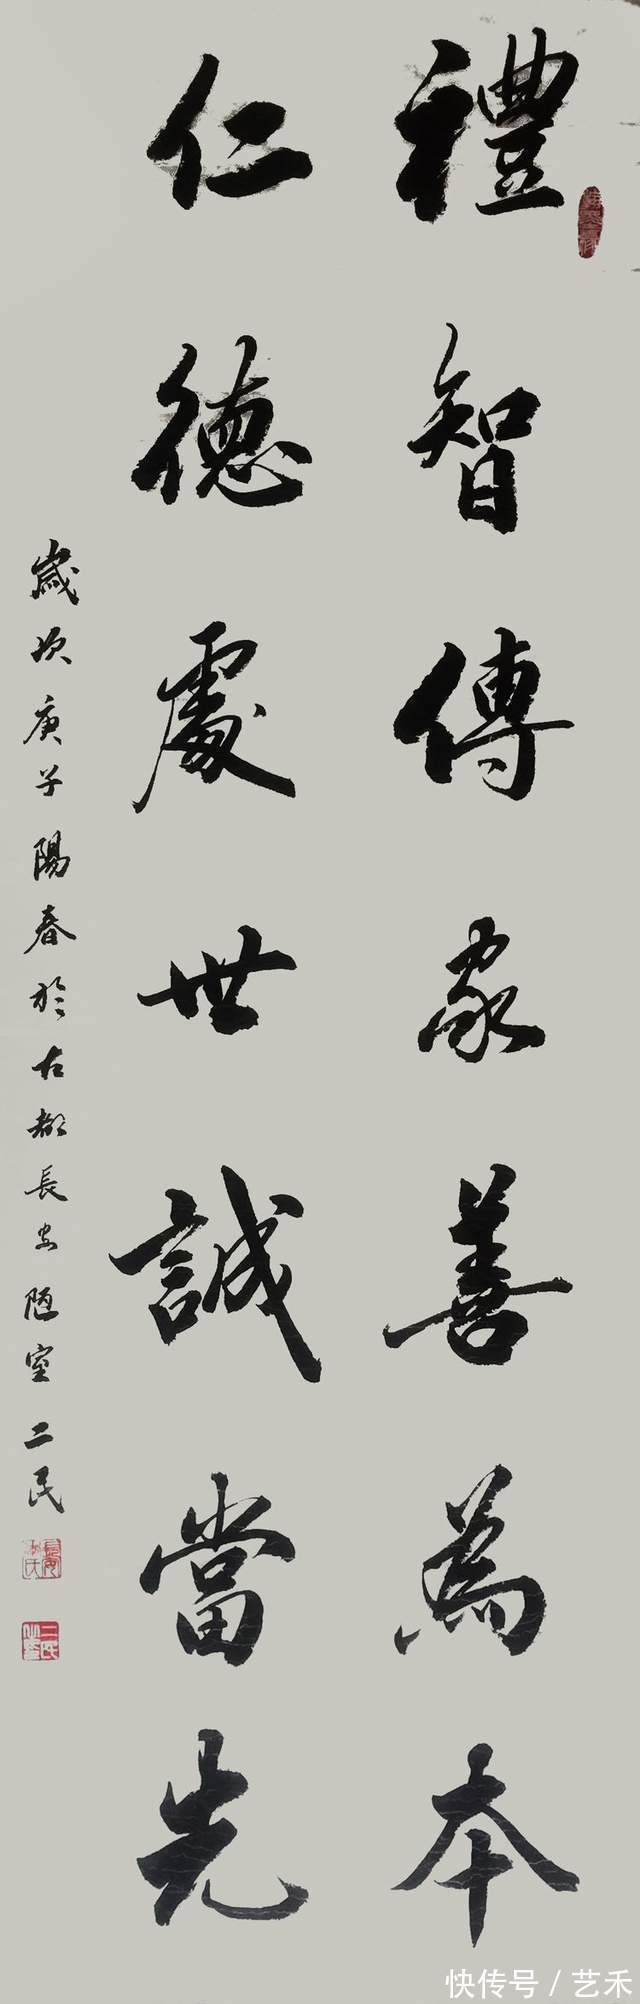 禮智傳家善為本
仁德處世誠當先
歲次庚子陽春於古都長安陋室二民
快传号／艺禾